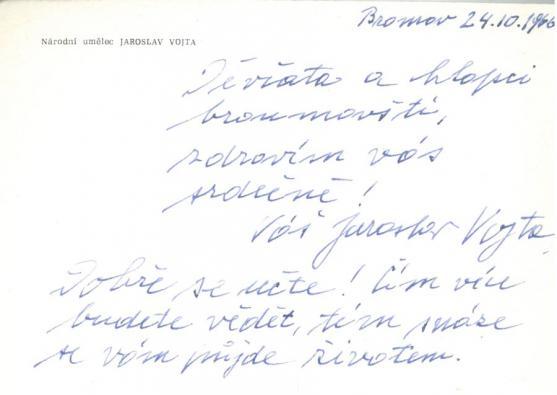 Bromov 24.10.1966
Národní umělec JAROSLAV VOJTA
Děvčata a hlapci
broumovští,
zdravím vás
srdečně!
Váš Jaroslav Vojta
Dobře se učte! Čím více
budete vědět, tím snáze
se vám půjde životem.